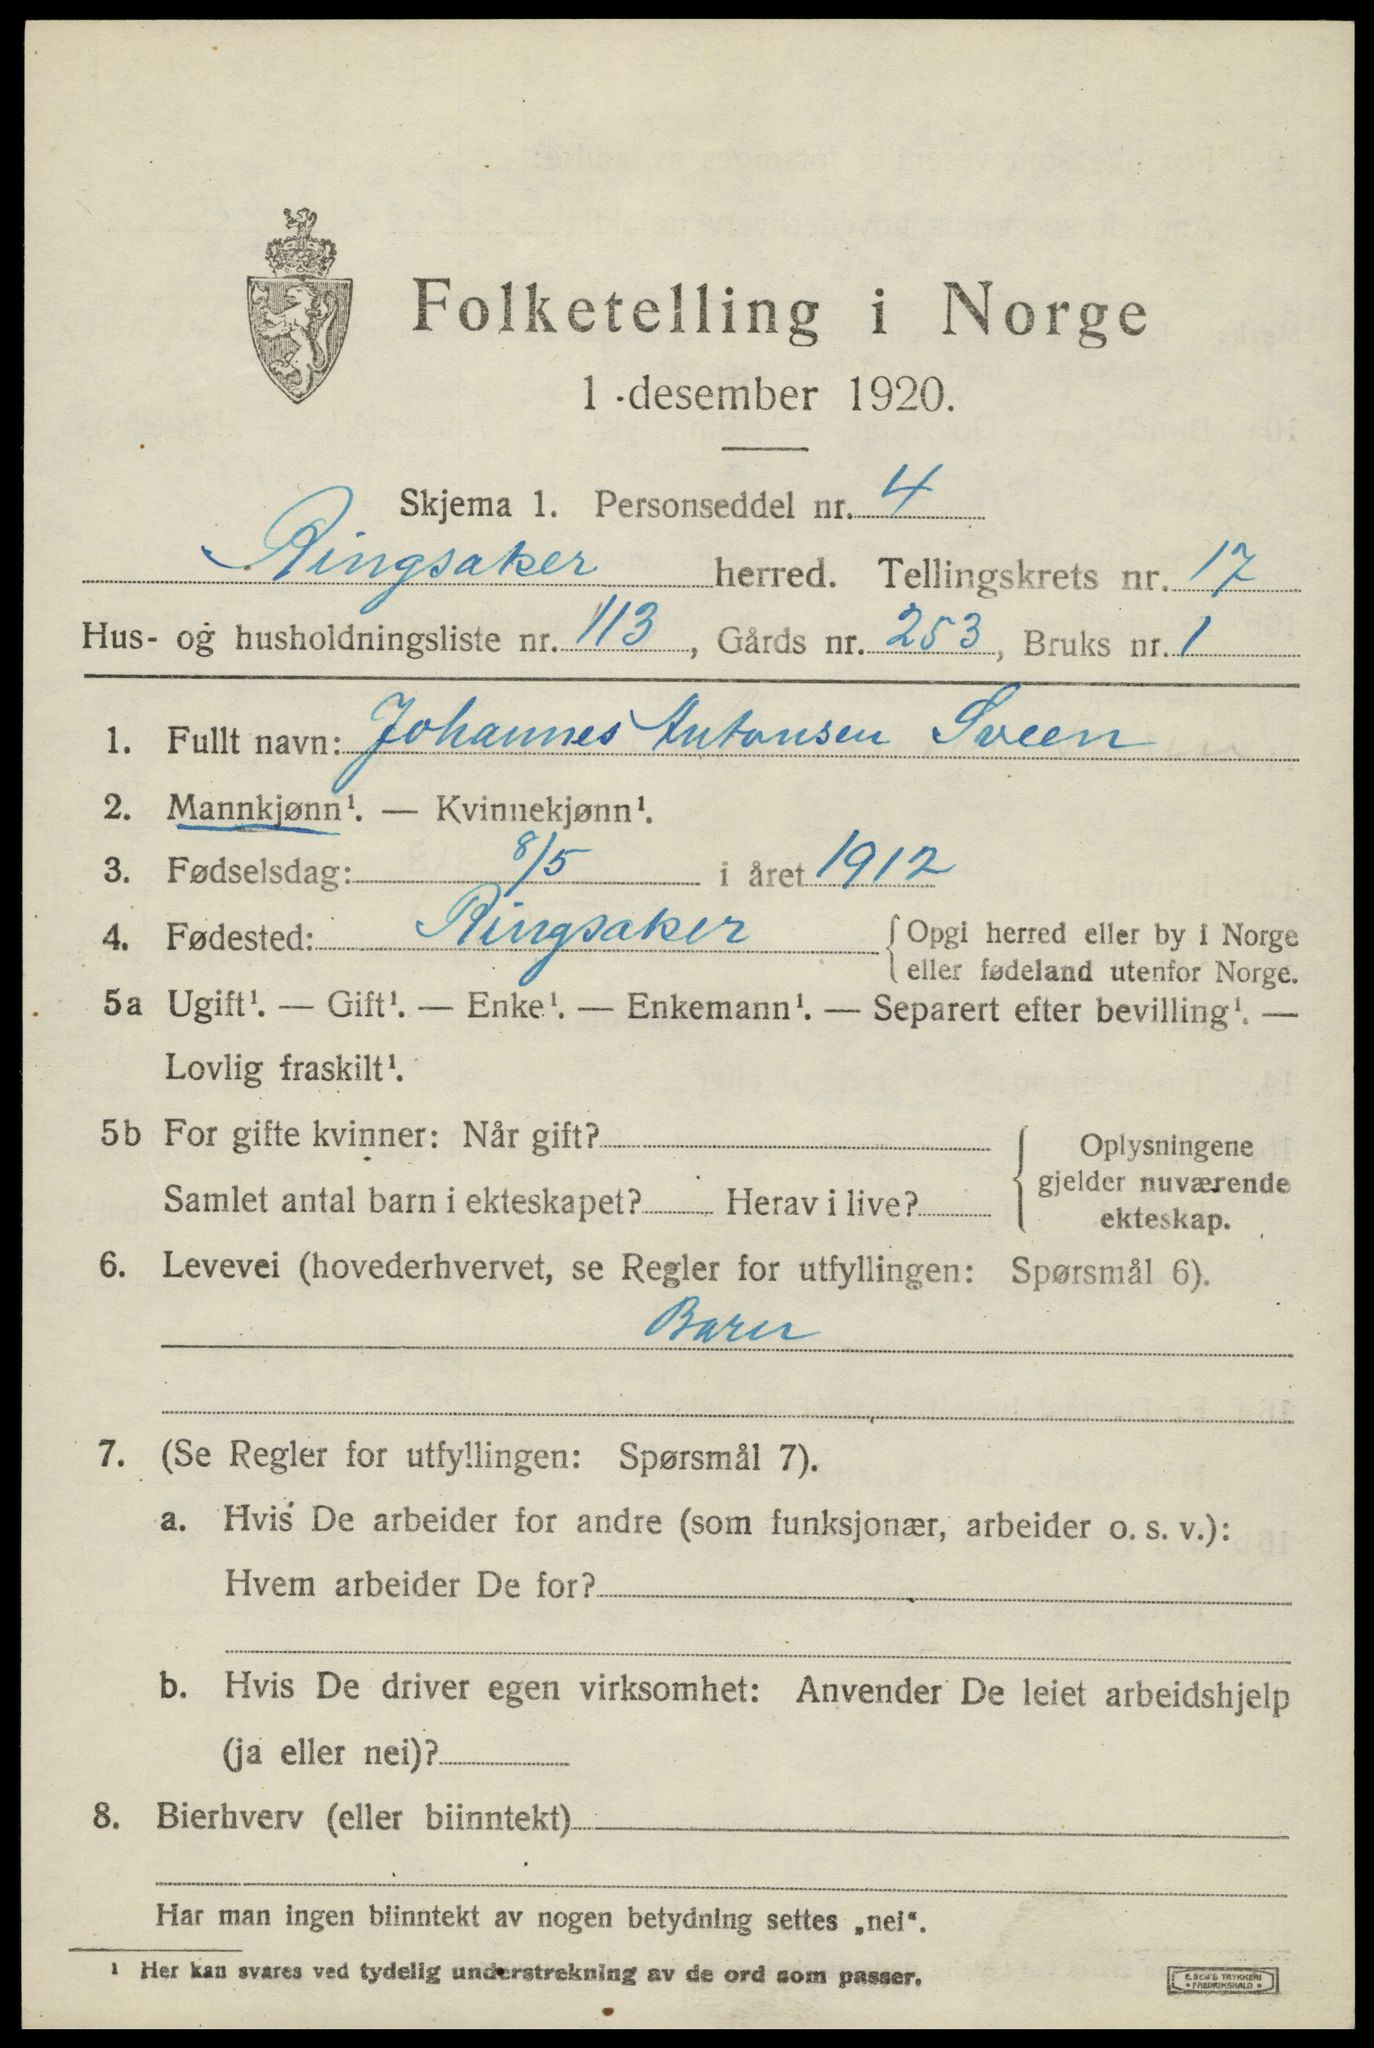 Folketelling i Norge
1 desember 1920.
Skjema 1. Personseddel nr. 4
Ringsaker herred. Tellingskrets nr. 17
Hus- og husholdningsliste nr. 113, Gårds nr. 253, Bruks nr. 1
1. Fullt navn: Johannes Antonsen Sveen
2. Mannkjønn¹. — Kvinnekjønn¹.
3. Fødselsdag: 8/5 i året 1912
4. Fødested: Ringsaker { Opgi herred eller by i Norge
eller fødeland utenfor Norge.
5a Ugift¹. — Gift¹. — Enke¹. — Enkemann¹. — Separert efter bevilling¹. —
Lovlig fraskilt¹.
5b For gifte kvinner: Når gift?
Samlet antal barn i ekteskapet? Herav i live?
Oplysningene
gjelder nuværende
ekteskap.
6. Levevei (hovederhvervet, se Regler for utfyllingen: Spørsmål 6).
Barn
7. (Se Regler for utfyllingen: Spørsmål 7).
a. Hvis De arbeider for andre (som funksjonær, arbeider o. s. v.):
Hvem arbeider De for?
b. Hvis De driver egen virksomhet: Anvender De leiet arbeidshjelp
(ja eller nei)?
8. Bierhverv (eller biinntekt)
Har man ingen biinntekt av nogen betydning settes „nei“.
¹ Her kan svares ved tydelig understrekning av de ord som passer.
E. SEM'S TRYKKERI
FREDRIKSHALD